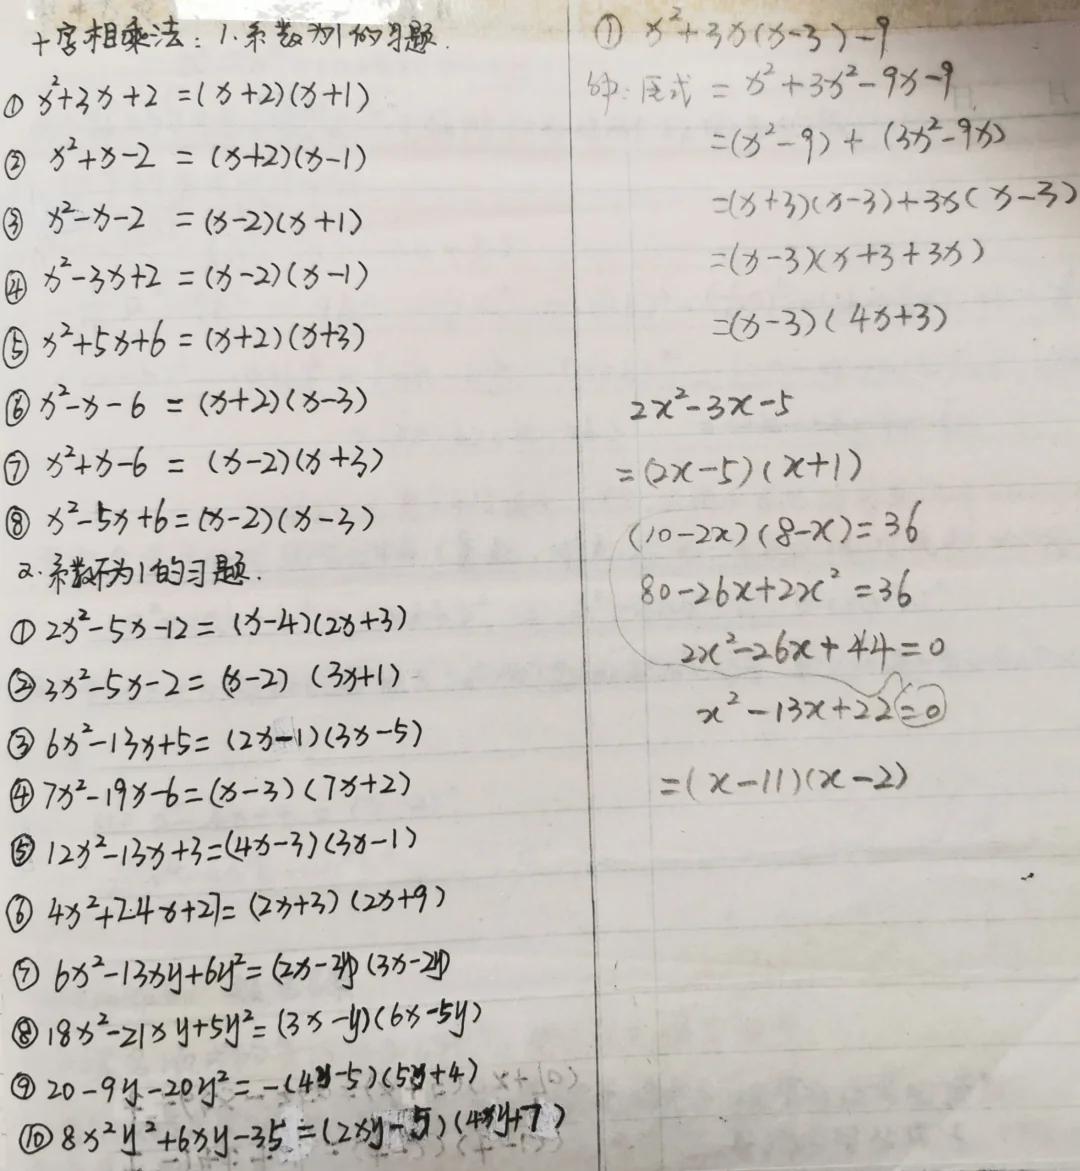 十字相乘法：1.系数为1的习题.
① x²+3x+2 =(x+2)(x+1)
② x²+x-2 = (x+2)(x-1)
③ x²-x-2 =(x-2)(x+1)
④ x²-3x+2 =(x-2)(x-1)
⑤ x²+5x+6 =(x+2)(x+3)
⑥ x²-x-6 = (x+2)(x-3)
⑦ x²+x-6 = (x-2)(x+3)
⑧ x²-5x+6=(x-2)(x-3)
2.系数不为1的习题.
① 2x²-5x-12= (x-4)(2x+3)
② 3x²-5x-2= (x-2) (3x+1)
③ 6x²-13x+5= (2x-1)(3x-5)
④ 7x²-19x-6=(x-3)(7x+2)
⑤ 12x²-13x+3=(4x-3)(3x-1)
⑥ 4x²+24x+27= (2x+3)(2x+9)
⑦ 6x²-13xy+6y²= (2x-3y)(3x-2y)
⑧ 18x²-21xy+5y²= (3x-y)(6x-5y)
⑨ 20-9y-20y²= -(4y-5)(5y+4)
⑩ 8x²y²+6xy-35=(2xy-5)(4xy+7)
① x²+3x(x-3)-9
解:原式 = x²+3x²-9x-9
=(x²-9)+(3x²-9x)
=(x+3)(x-3)+3x(x-3)
=(x-3)(x+3+3x)
=(x-3)(4x+3)
2x²-3x-5
=(2x-5)(x+1)
(10-2x)(8-x)=36
80-26x+2x²=36
2x²-26x+44=0
x²-13x+22=0
=(x-11)(x-2)